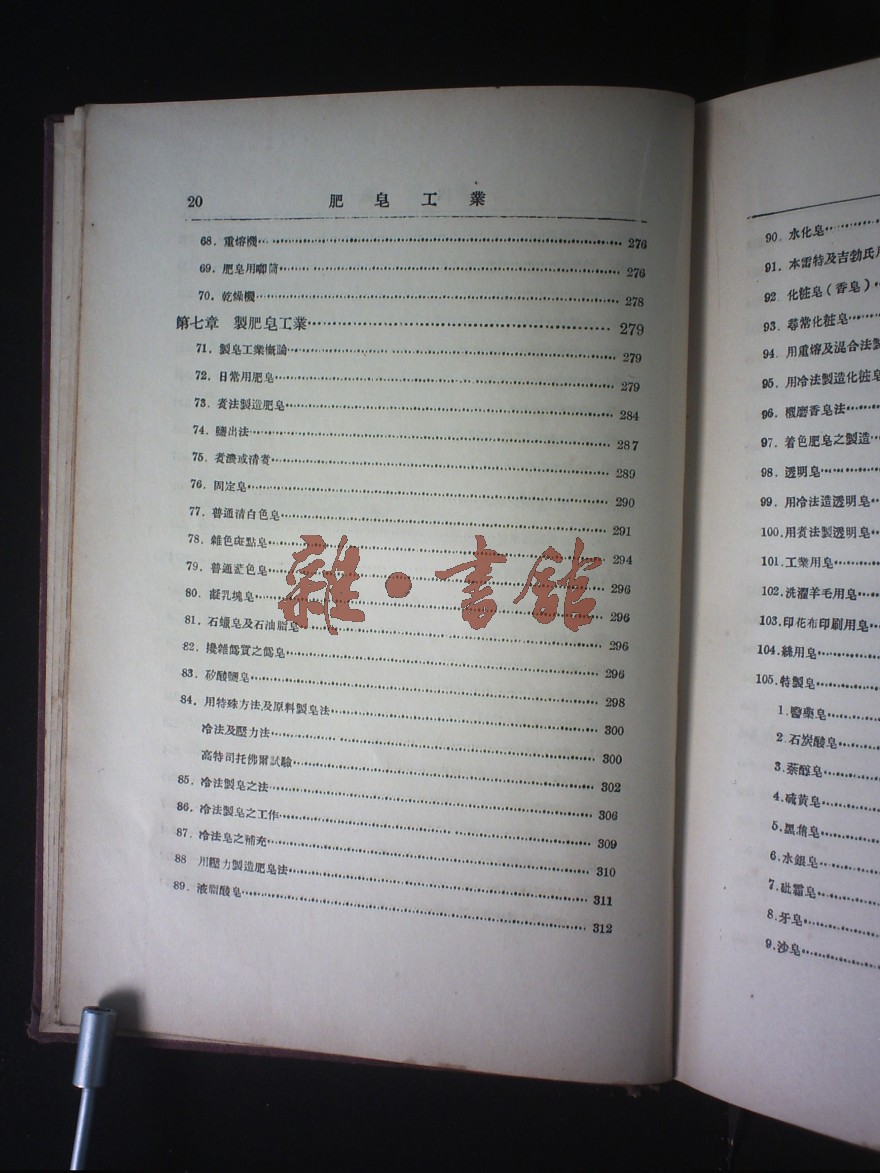 20 肥皂工業
68. 重熔機 276
69. 肥皂用唧筒 276
70. 乾燥機 278
第七章 製肥皂工業 279
71. 製皂工業概論 279
72. 日常用肥皂 279
73. 煑法製造肥皂 284
74. 鹽出法 287
75. 煑濃或清煑 289
76. 固定皂 290
77. 普通清白色皂 291
78. 雜色斑點皂 294
79. 普通藍色皂 296
80. 凝乳塊皂 296
81. 石蠟皂及石油脂皂 296
82. 攙雜僞質之僞皂 296
83. 矽酸鹽皂 298
84. 用特殊方法及原料製皂法 300
冷法及壓力法 300
高特司托佛爾試驗 302
85. 冷法製皂之法 306
86. 冷法製皂之工作 309
87. 冷法皂之補充 310
88 用壓力製造肥皂法 311
89. 液脂酸皂 312
雜·書館
90. 水化皂
91. 本雷特及吉勃氏
92. 化粧皂(香皂)
93. 尋常化粧皂
94. 用重熔及混合法製
95. 用冷法製造化粧皂
96. 機磨香皂法
97. 着色肥皂之製造
98. 透明皂
99. 用冷法造透明皂
100. 用煑法製透明皂
101. 工業用皂
102. 洗濯羊毛用皂
103. 印花布印刷用皂
104. 絲用皂
105. 特製皂
1. 醫藥皂
2. 石炭酸皂
3. 萘醇皂
4. 硫黄皂
5. 黑䓍皂
6. 水銀皂
7. 砒霜皂
8. 牙皂
9. 沙皂